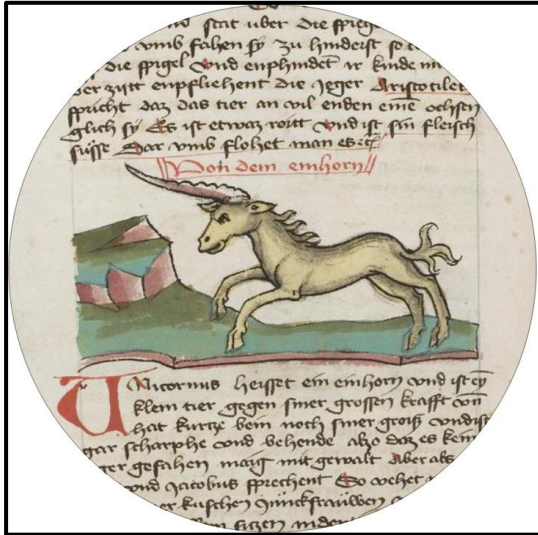 stat uber die spiege
vmb fahen sy zu hinderst so
die spigel vnd enphindet ir kinde
zitt enpfliehent die Jeger Aristotiles
spricht daz das tier an vil enden eine ochsen
glich sy Es ist etwaz rott vnd ist sin fleisch
süsse dar vmb flohet man es
Von dem einhorn
UNicornus heisset ein einhorn vnd ist ey
klein tier gegen siner grossen krafft von
hat kurtze bein noch siner groiß vnd ist
gar scharphe vnd behende also daz es kein
ger gefahen maig mit gewalt Aber als
vnd Jacobus sprechent So vohet
er kuschen Junckfrauwen
sitzen